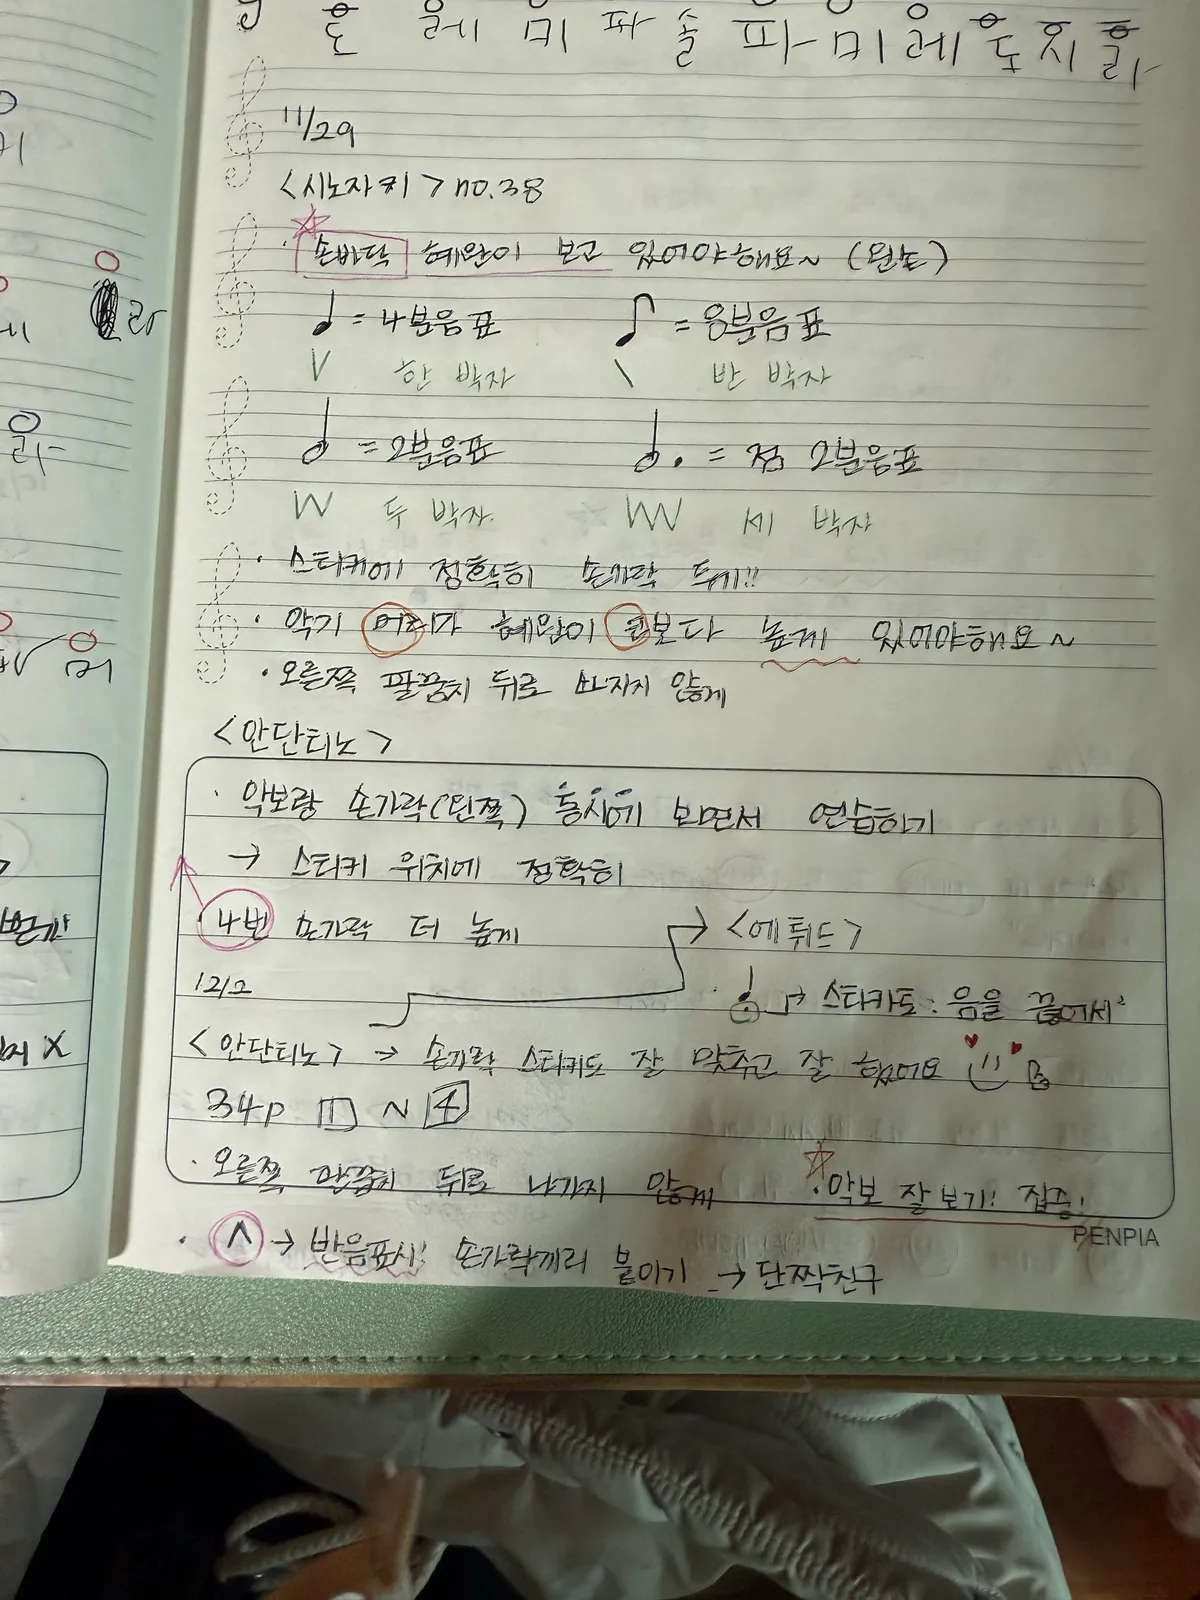 도 레 미 파 솔 파 미 레 도 시 라
11/29
<시노자키> no.38
· 손바닥 혜완이 보고 있어야해요~ (왼손)
♩ = 4분음표 ♪ = 8분음표
V 한 박자 \ 반 박자
= 2분음표 . = 점 2분음표
VV 두 박자. VVV 세 박자
· 스티커에 정확히 손가락 두기!!
· 악기 머리가 혜완이 코보다 높게 있어야해요~
· 오른쪽 팔꿈치 뒤로 빠지지 않게
<안단티노>
· 악보랑 손가락(왼쪽) 동시에 보면서 연습하기
→ 스티커 위치에 정확히
· 4번 손가락 더 높게
→ <에튀드>
12/2
· → 스타카토: 음을 끊어서
<안단티노> → 손가락 스티커도 잘 맞추고 잘 했어요
34p 1 ~ 4
· 오른쪽 팔꿈치 뒤로 나가지 않게
· 악보 잘 보기! 집중!
PENPIA
· ∧ → 반음표시! 손가락끼리 붙이기 → 단짝친구
미
라
레
라
미
X